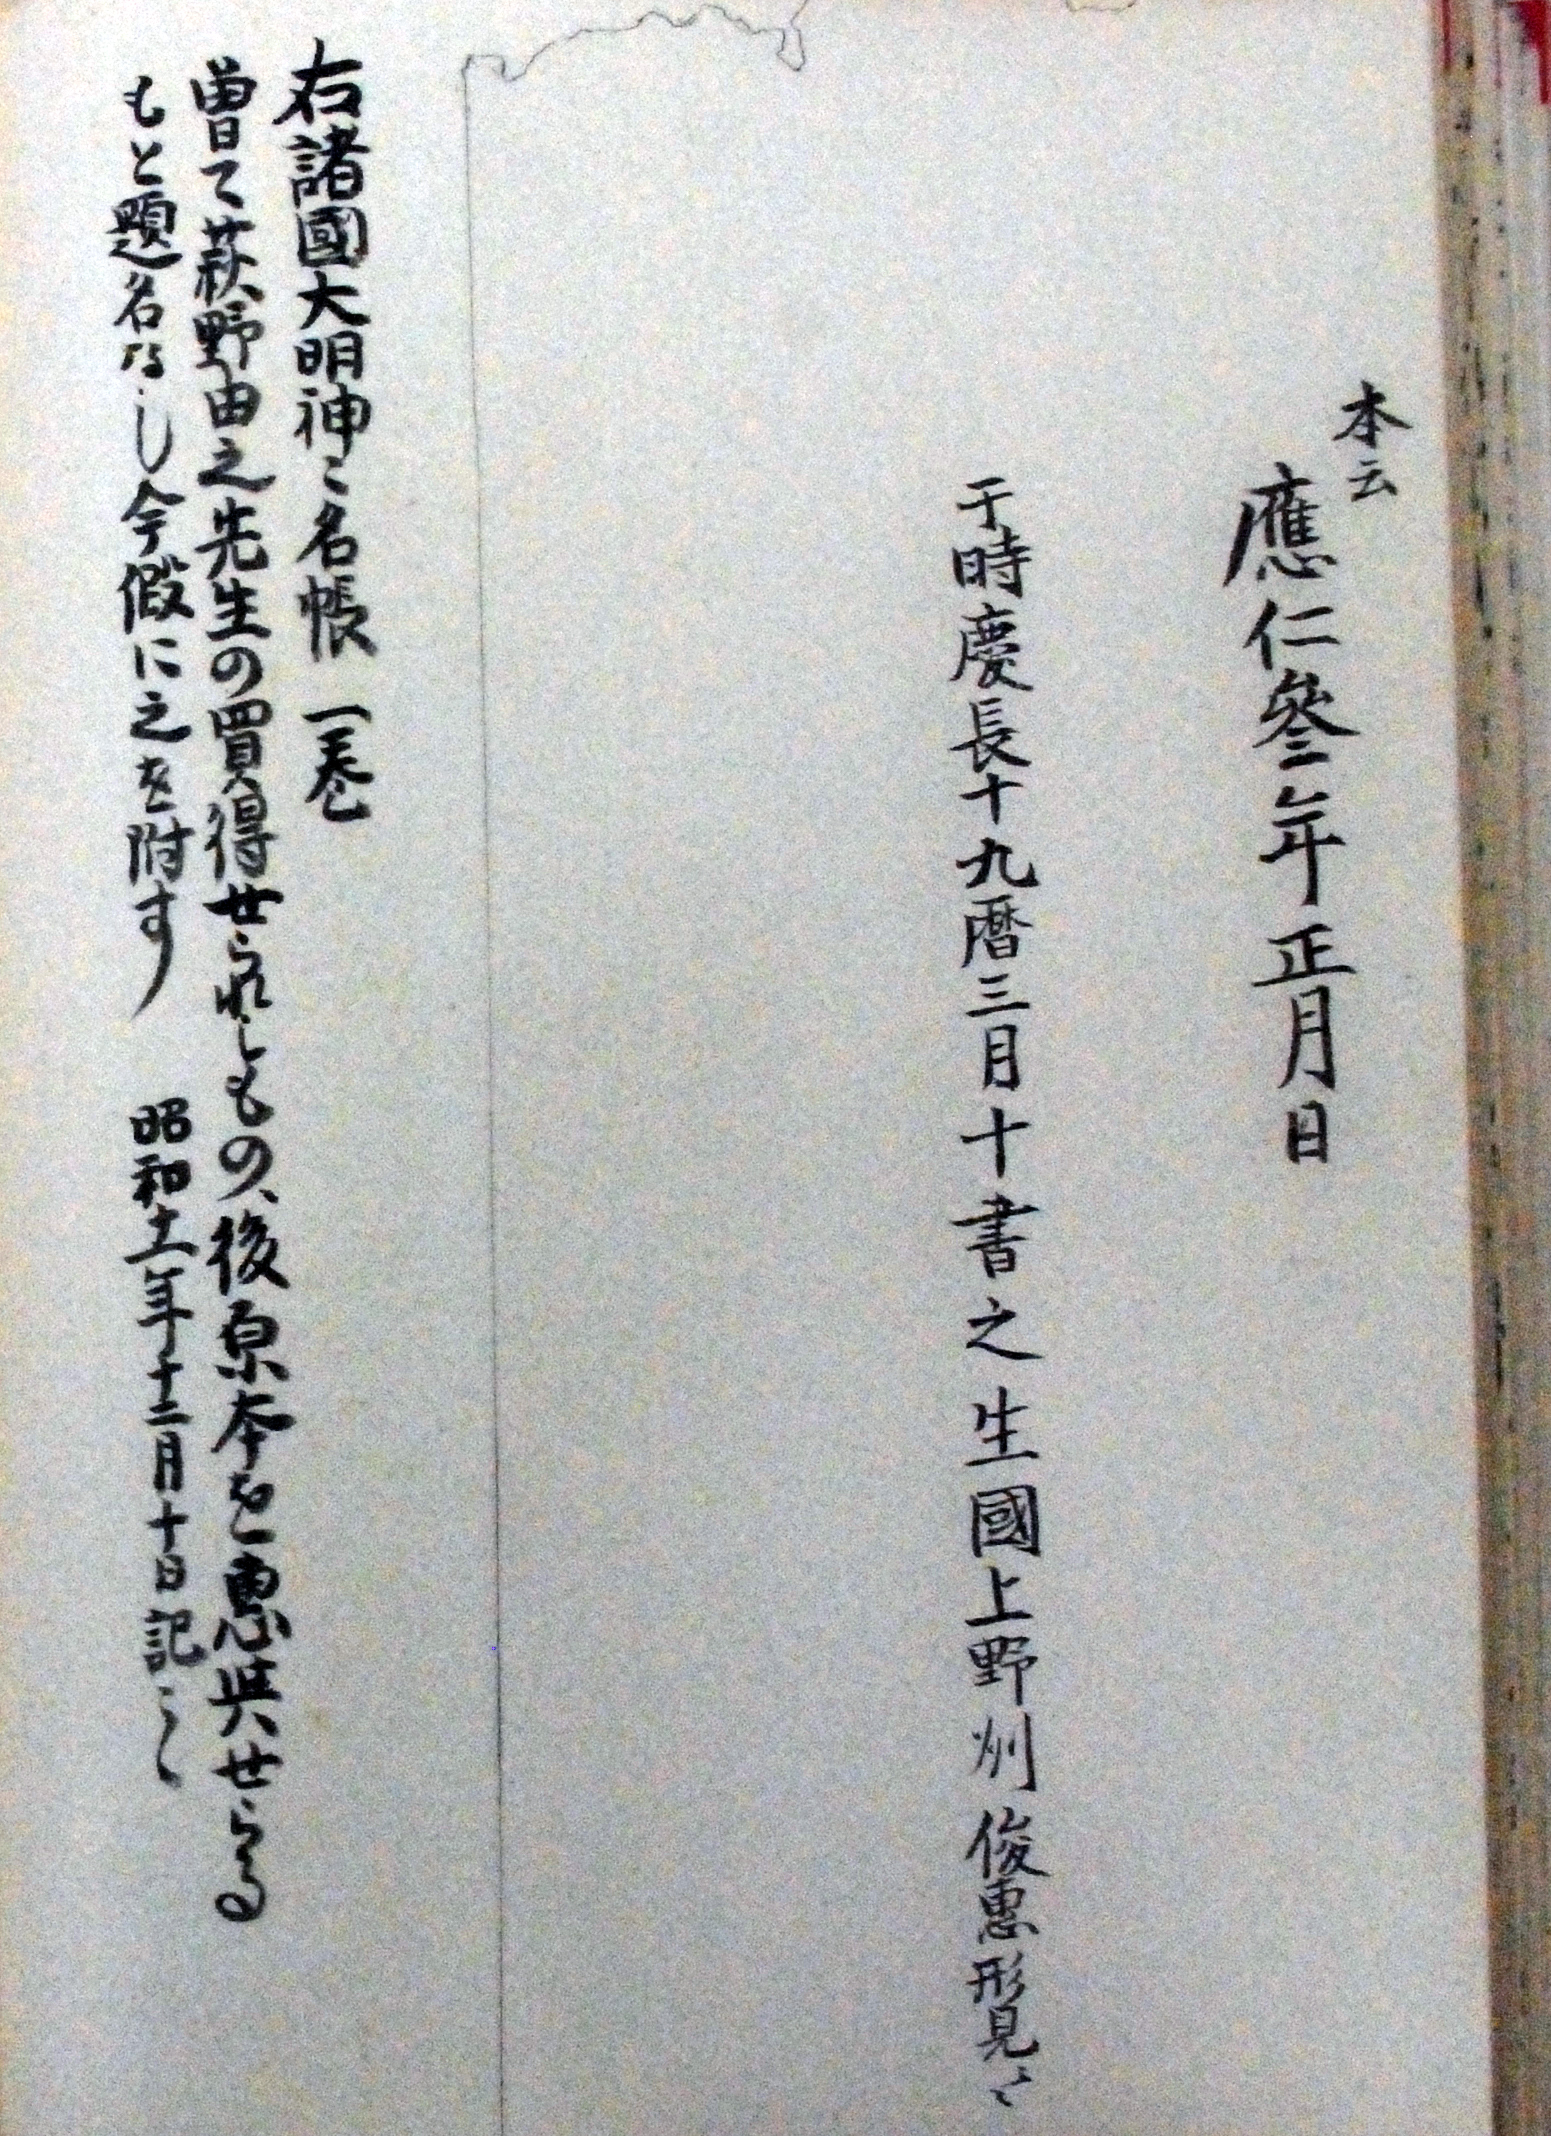 本云
應仁參年正月日
于時慶長十九暦三月十書之生國上野州俊惠形見ニ
右諸國大明神ミ名帳一卷
曽て萩野由之先生の買得せられしもの、後原本を惠與せらる
もと題名なし今假に之を附す 昭和十一年十二月十日記之